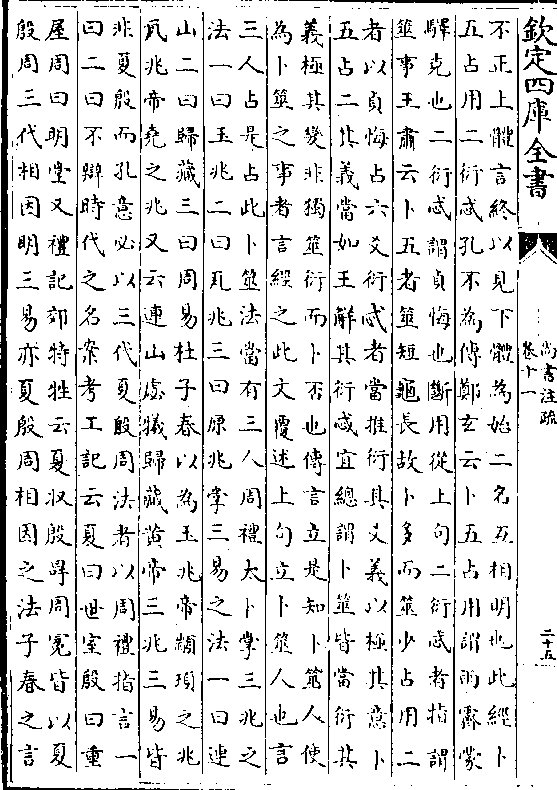 欽定四庫全書
尚書注疏
卷十一
二十五
不正上體言終以見下體為始二名互相明也此經卜
五占用二衍忒孔不為傳鄭玄云卜五占用謂雨霽蒙
驛克也二衍忒謂貞悔也斷用從上句二衍忒者指謂
筮事王肅云卜五者筮短龜長故卜多而筮少占用二
者以貞悔占六爻衍忒者當推衍其爻義以極其意卜
五占二其義當如王解其衍忒宜總謂卜筮皆當衍其
義極其變非獨筮衍而卜否也傳言立是知卜筮人使
為卜筮之事者言經之此文覆述上句立卜筮人也言
三人占是占此卜筮法當有三人周禮太卜掌三兆之
法一曰玉兆二曰瓦兆三曰原兆掌三易之法一曰連
山二曰歸藏三曰周易杜子春以為玉兆帝顓頊之兆
瓦兆帝堯之兆又云連山虙犧歸藏黃帝三兆三易皆
非夏殷而孔意必以三代夏殷周法者以周禮指言一
曰二曰不辯時代之名案考工記云夏曰世室殷曰重
屋周曰明堂又禮記郊特牲云夏収殷冔周冕皆以夏
殷周三代相因明三易亦夏殷周相因之法子春之言